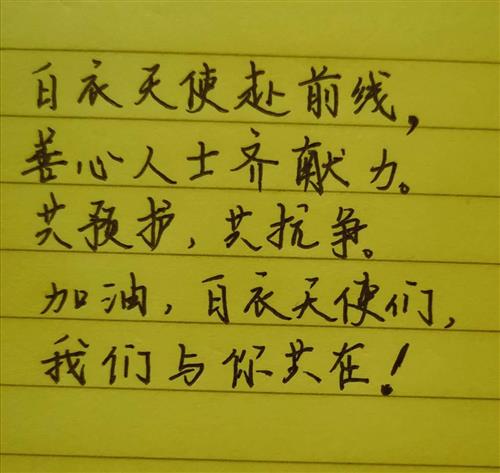 白衣天使赴前线,
善心人士齐献力。
共预护,共抗争。
加油,白衣天使们,
我们与你共在!